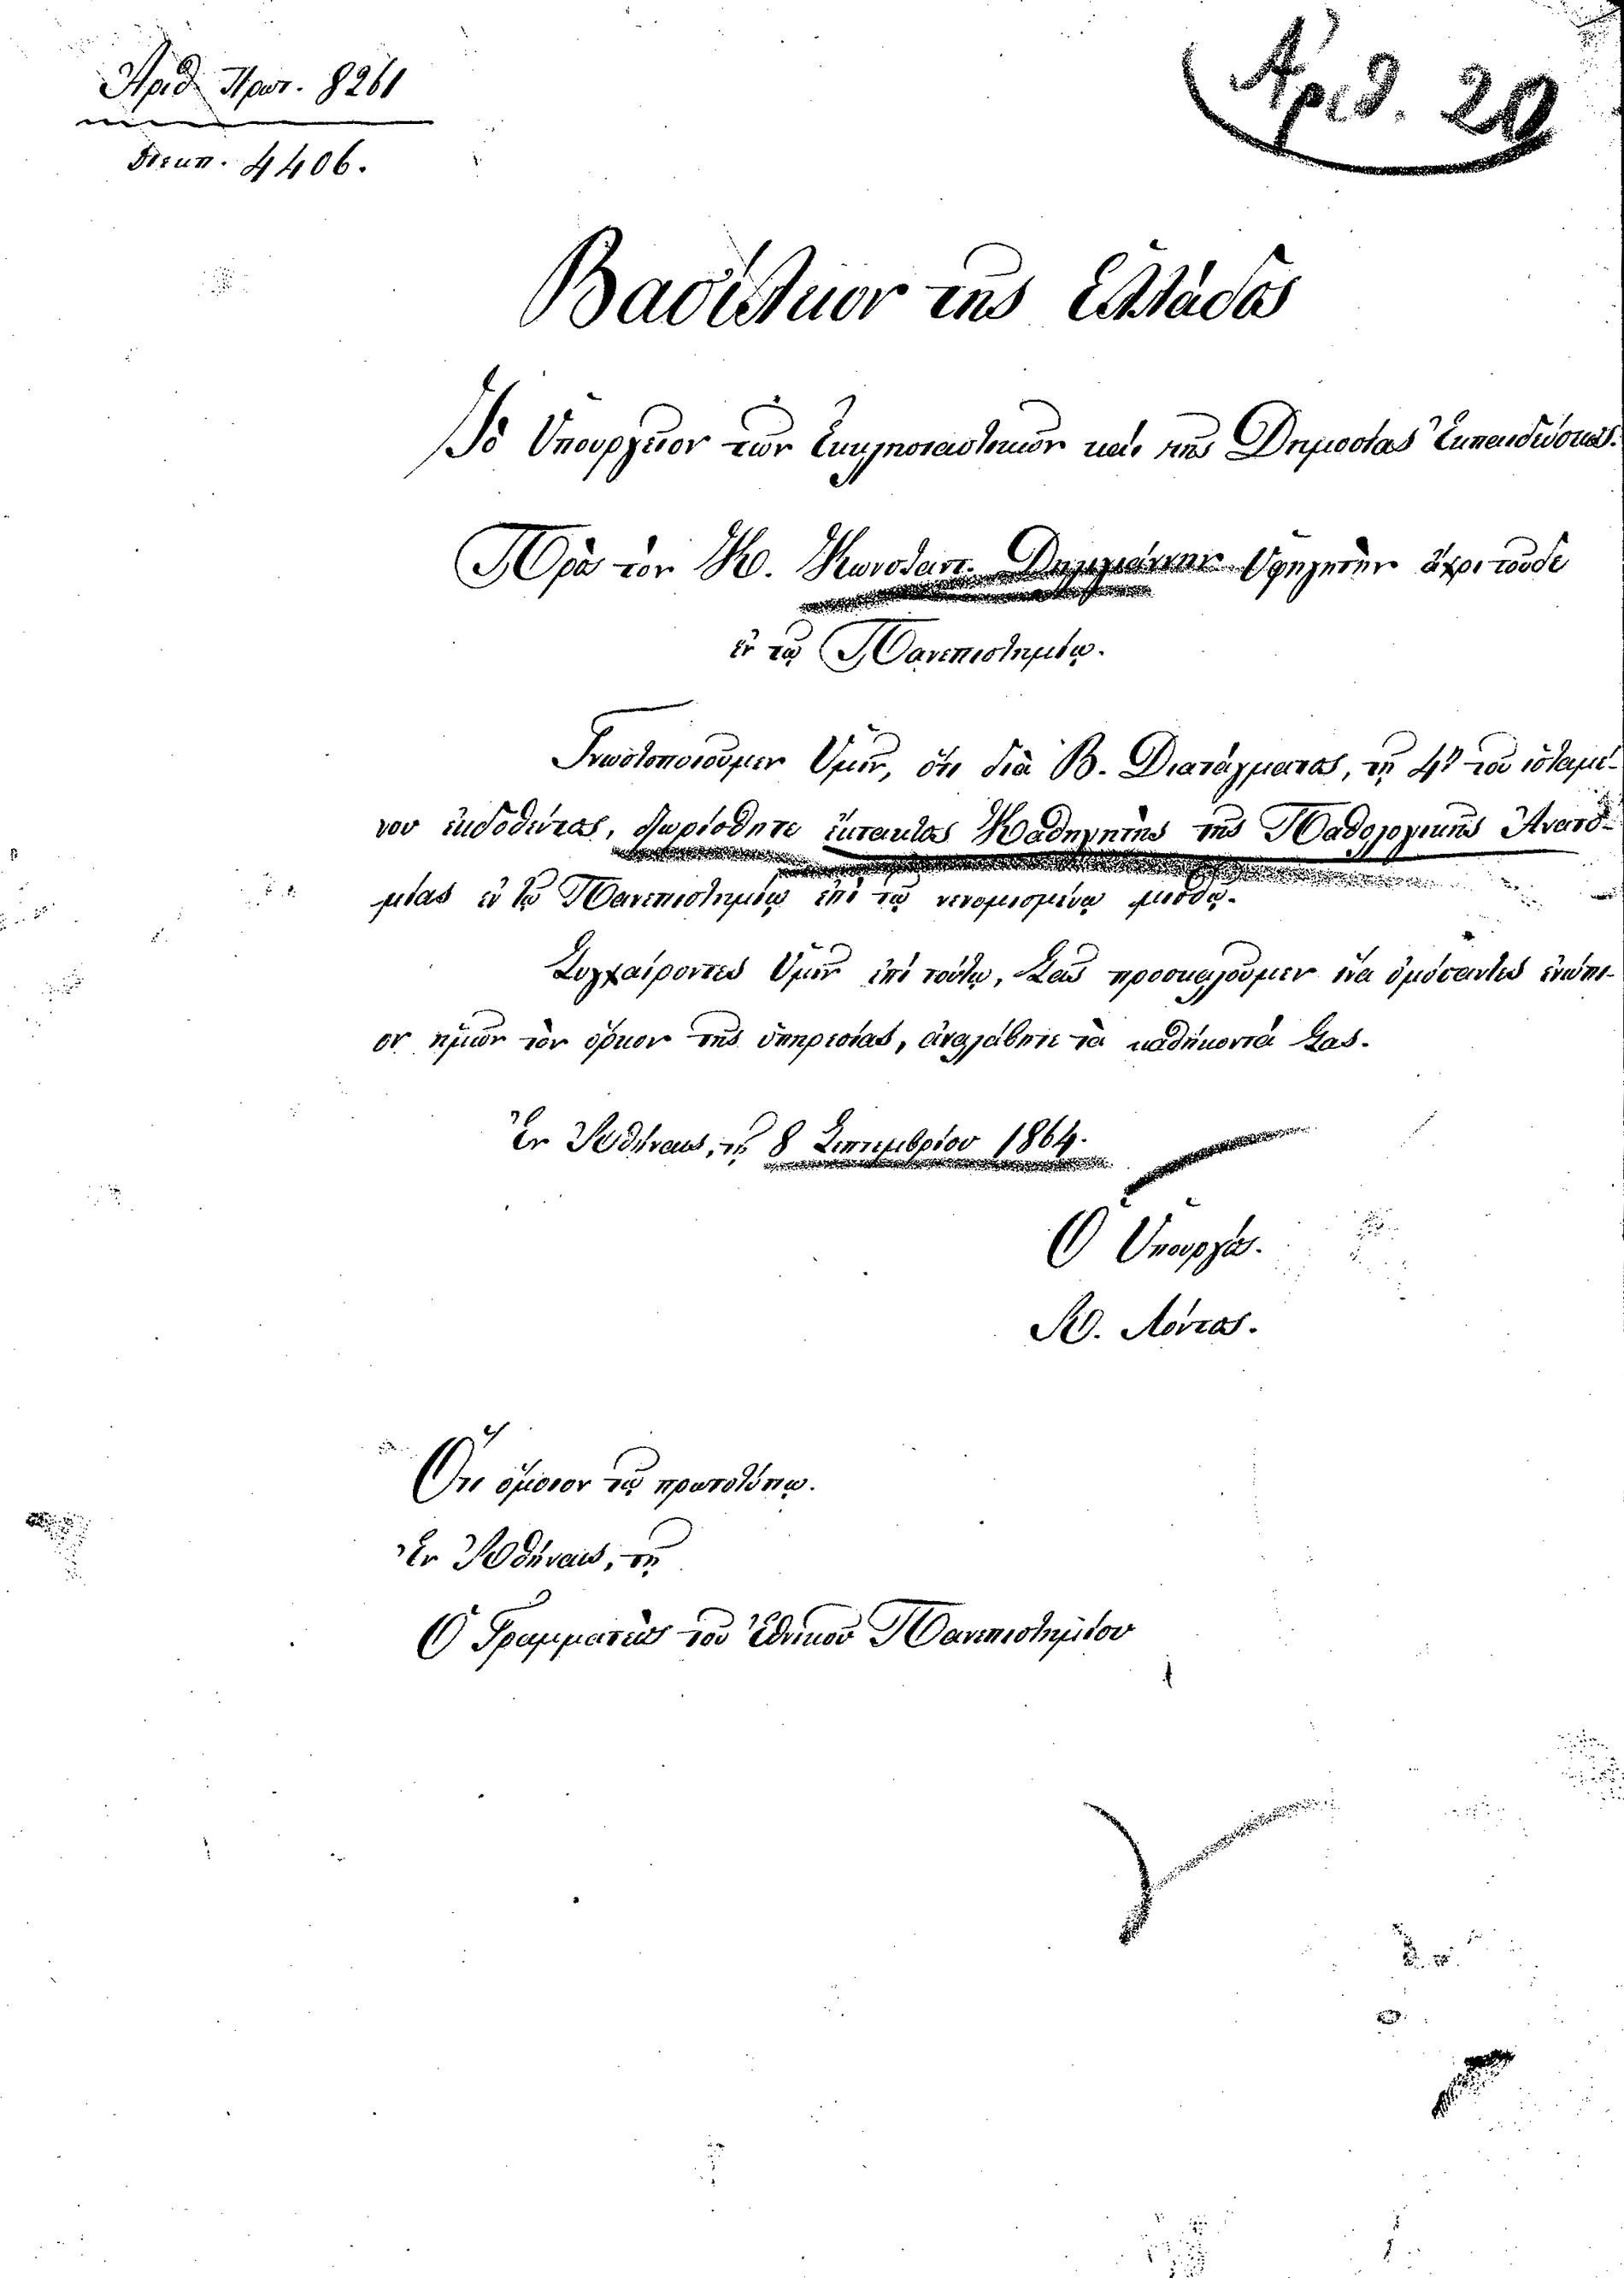 Ἀριθ. Πρωτ. 8261
Διεκπ. 4406.
Ἀριθ. 20
Βασίλειον της Ἑλλάδος
Τὸ Ὑπουργεῖον τῶν Ἐκκλησιαστικῶν καὶ τῆς Δημοσίας Ἐκπαιδεύσεως.
Πρὸς τὸν Κ. Κωνσταντ. Δηλιγιάννην Ὑφηγητὴν ἄχρι τοῦδε
ἐν τῷ Πανεπιστημίῳ.
Γνωστοποιοῦμεν Ὑμῖν, ὅτι διὰ Β. Διατάγματος, τῇ 4ῃ τοῦ ἱσταμέ-
νου ἐκδοθέντος, διωρίσθητε ἔκτακτος Καθηγητὴς τῆς Παθολογικῆς Ἀνατο-
μίας ἐν τῷ Πανεπιστημίῳ ἐπὶ τῷ νενομισμένῳ μισθῷ.
Συγχαίροντες Ὑμῖν ἐπὶ τούτῳ, Σᾶς προσκαλοῦμεν ἵνα ὀμόσαντες ἐνώπι-
ον ἡμῶν τὸν ὅρκον τῆς ὑπηρεσίας, ἀναλάβητε τὰ καθήκοντά Σας.
Ἐν Ἀθήναις, τῇ 8 Σεπτεμβρίου 1864.
Ὁ Ὑπουργός.
Α. Λόντος.
Ὅτι ὅμοιον τῷ πρωτοτύπῳ.
Ἐν Ἀθήναις, τῇ
Ὁ Γραμματεὺς τοῦ Ἐθνικοῦ Πανεπιστημίου